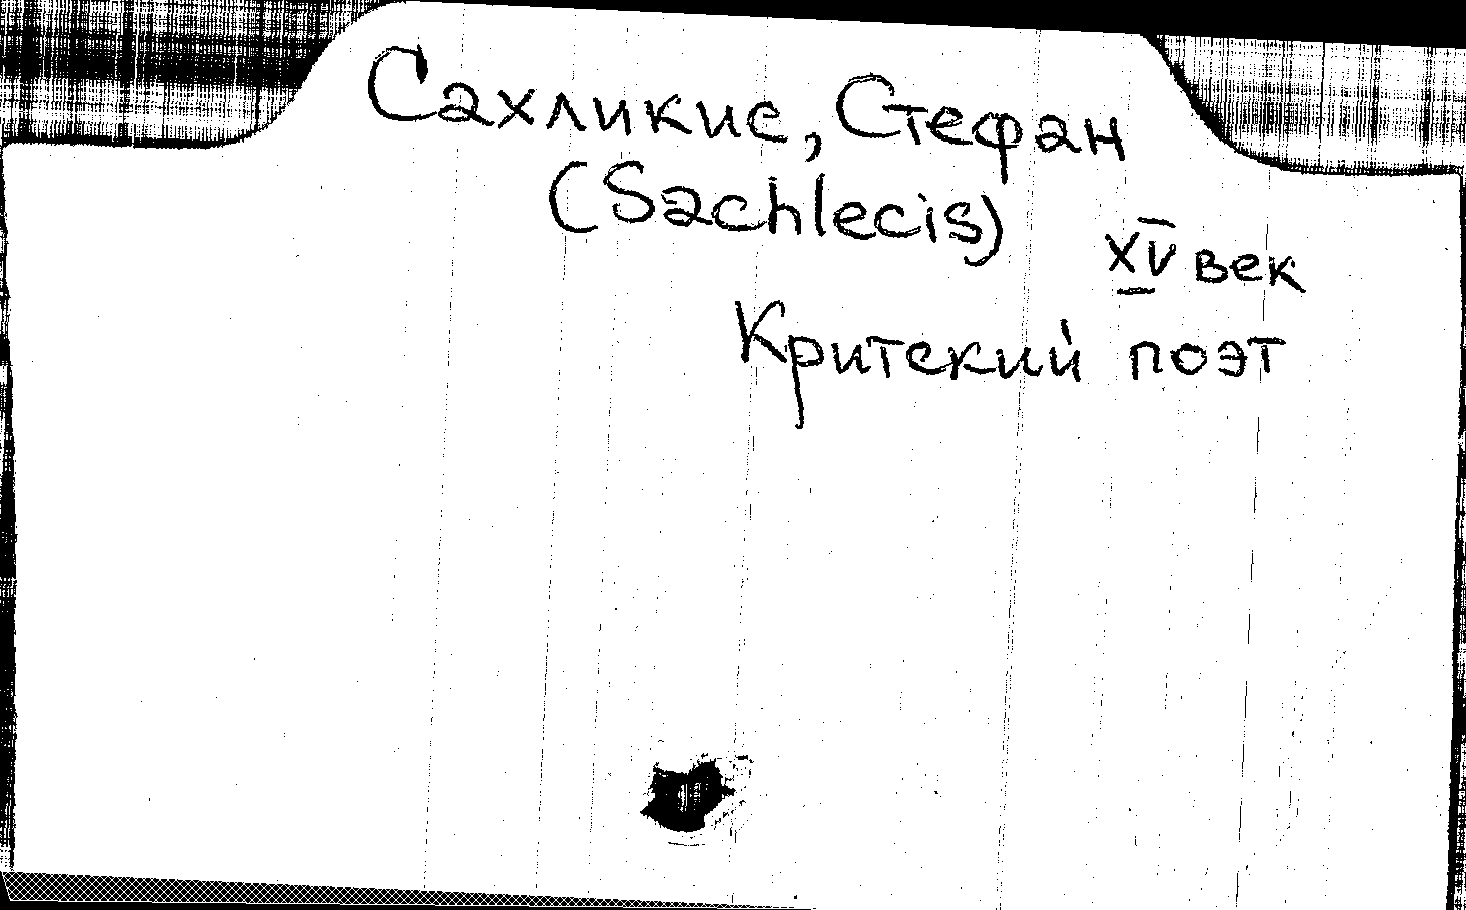 Сахликис, Стефан
(Sachlecis)
XV век
Критский поэт